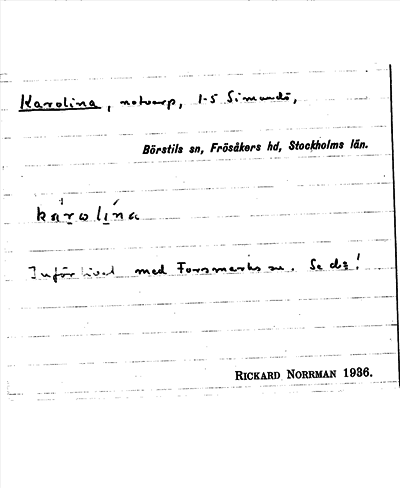 Karolina, notvarp, 1-5 Simundö,
Börstils sn, Frösåkers hd, Stockholms län.
karolina
Införlivat med Forsmarks sn. Se d:o!
RICKARD NORRMAN 1936.